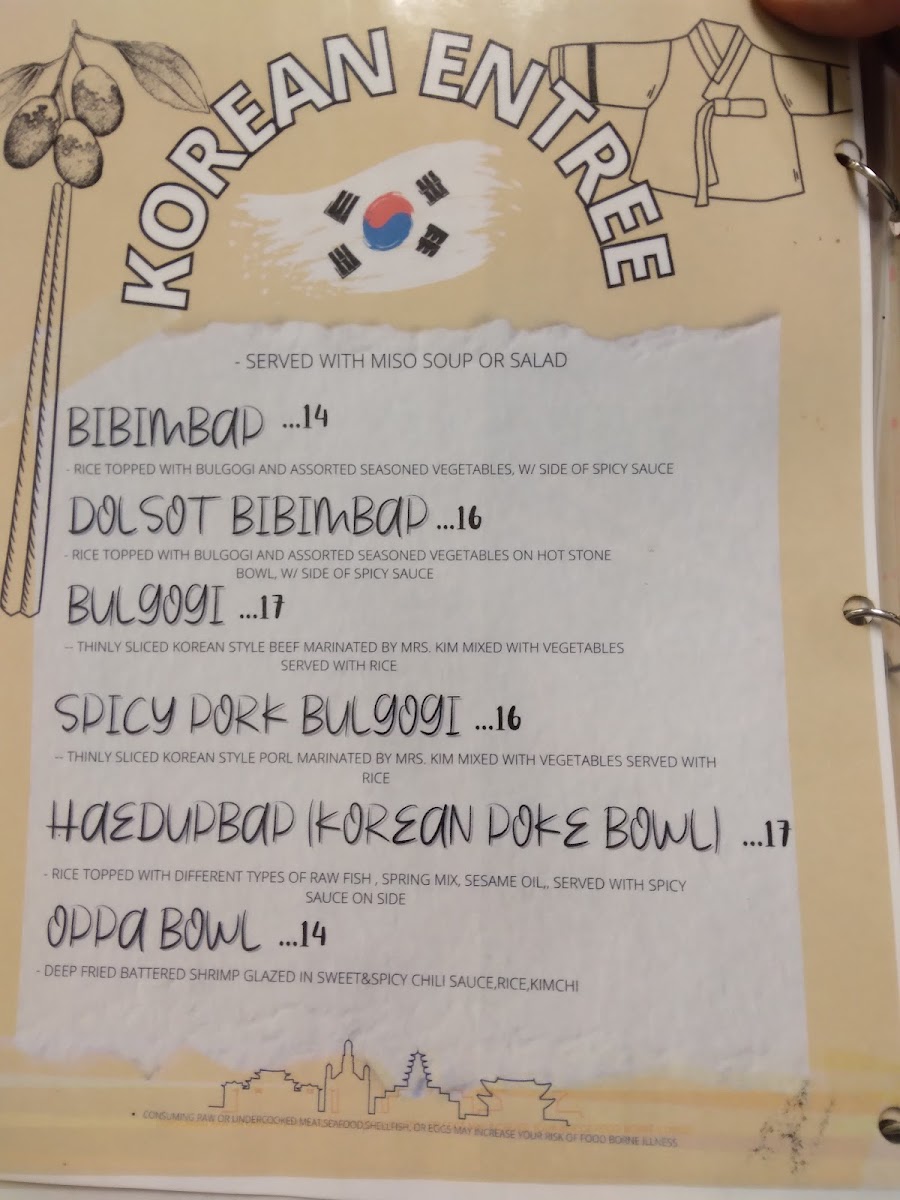 KOREAN ENTREE
- SERVED WITH MISO SOUP OR SALAD
BIBIMBAP ...14
- RICE TOPPED WITH BULGOGI AND ASSORTED SEASONED VEGETABLES, W/ SIDE OF SPICY SAUCE
DOLSOT BIBIMBAP ...16
- RICE TOPPED WITH BULGOGI AND ASSORTED SEASONED VEGETABLES ON HOT STONE
BOWL, W/ SIDE OF SPICY SAUCE
BULGOGI ...17
-- THINLY SLICED KOREAN STYLE BEEF MARINATED BY MRS. KIM MIXED WITH VEGETABLES
SERVED WITH RICE
SPICY PORK BULGOGI ...16
-- THINLY SLICED KOREAN STYLE PORL MARINATED BY MRS. KIM MIXED WITH VEGETABLES SERVED WITH
RICE
HAEDUPBAP (KOREAN POKE BOWL) ...17
- RICE TOPPED WITH DIFFERENT TYPES OF RAW FISH , SPRING MIX, SESAME OIL,, SERVED WITH SPICY
SAUCE ON SIDE
OPPA BOWL ...14
- DEEP FRIED BATTERED SHRIMP GLAZED IN SWEET&SPICY CHILI SAUCE,RICE,KIMCHI
CONSUMING RAW OR UNDERCOOKED MEAT,SEAFOOD,SHELLFISH, OR EGGS MAY INCREASE YOUR RISK OF FOOD BORNE ILLNESS